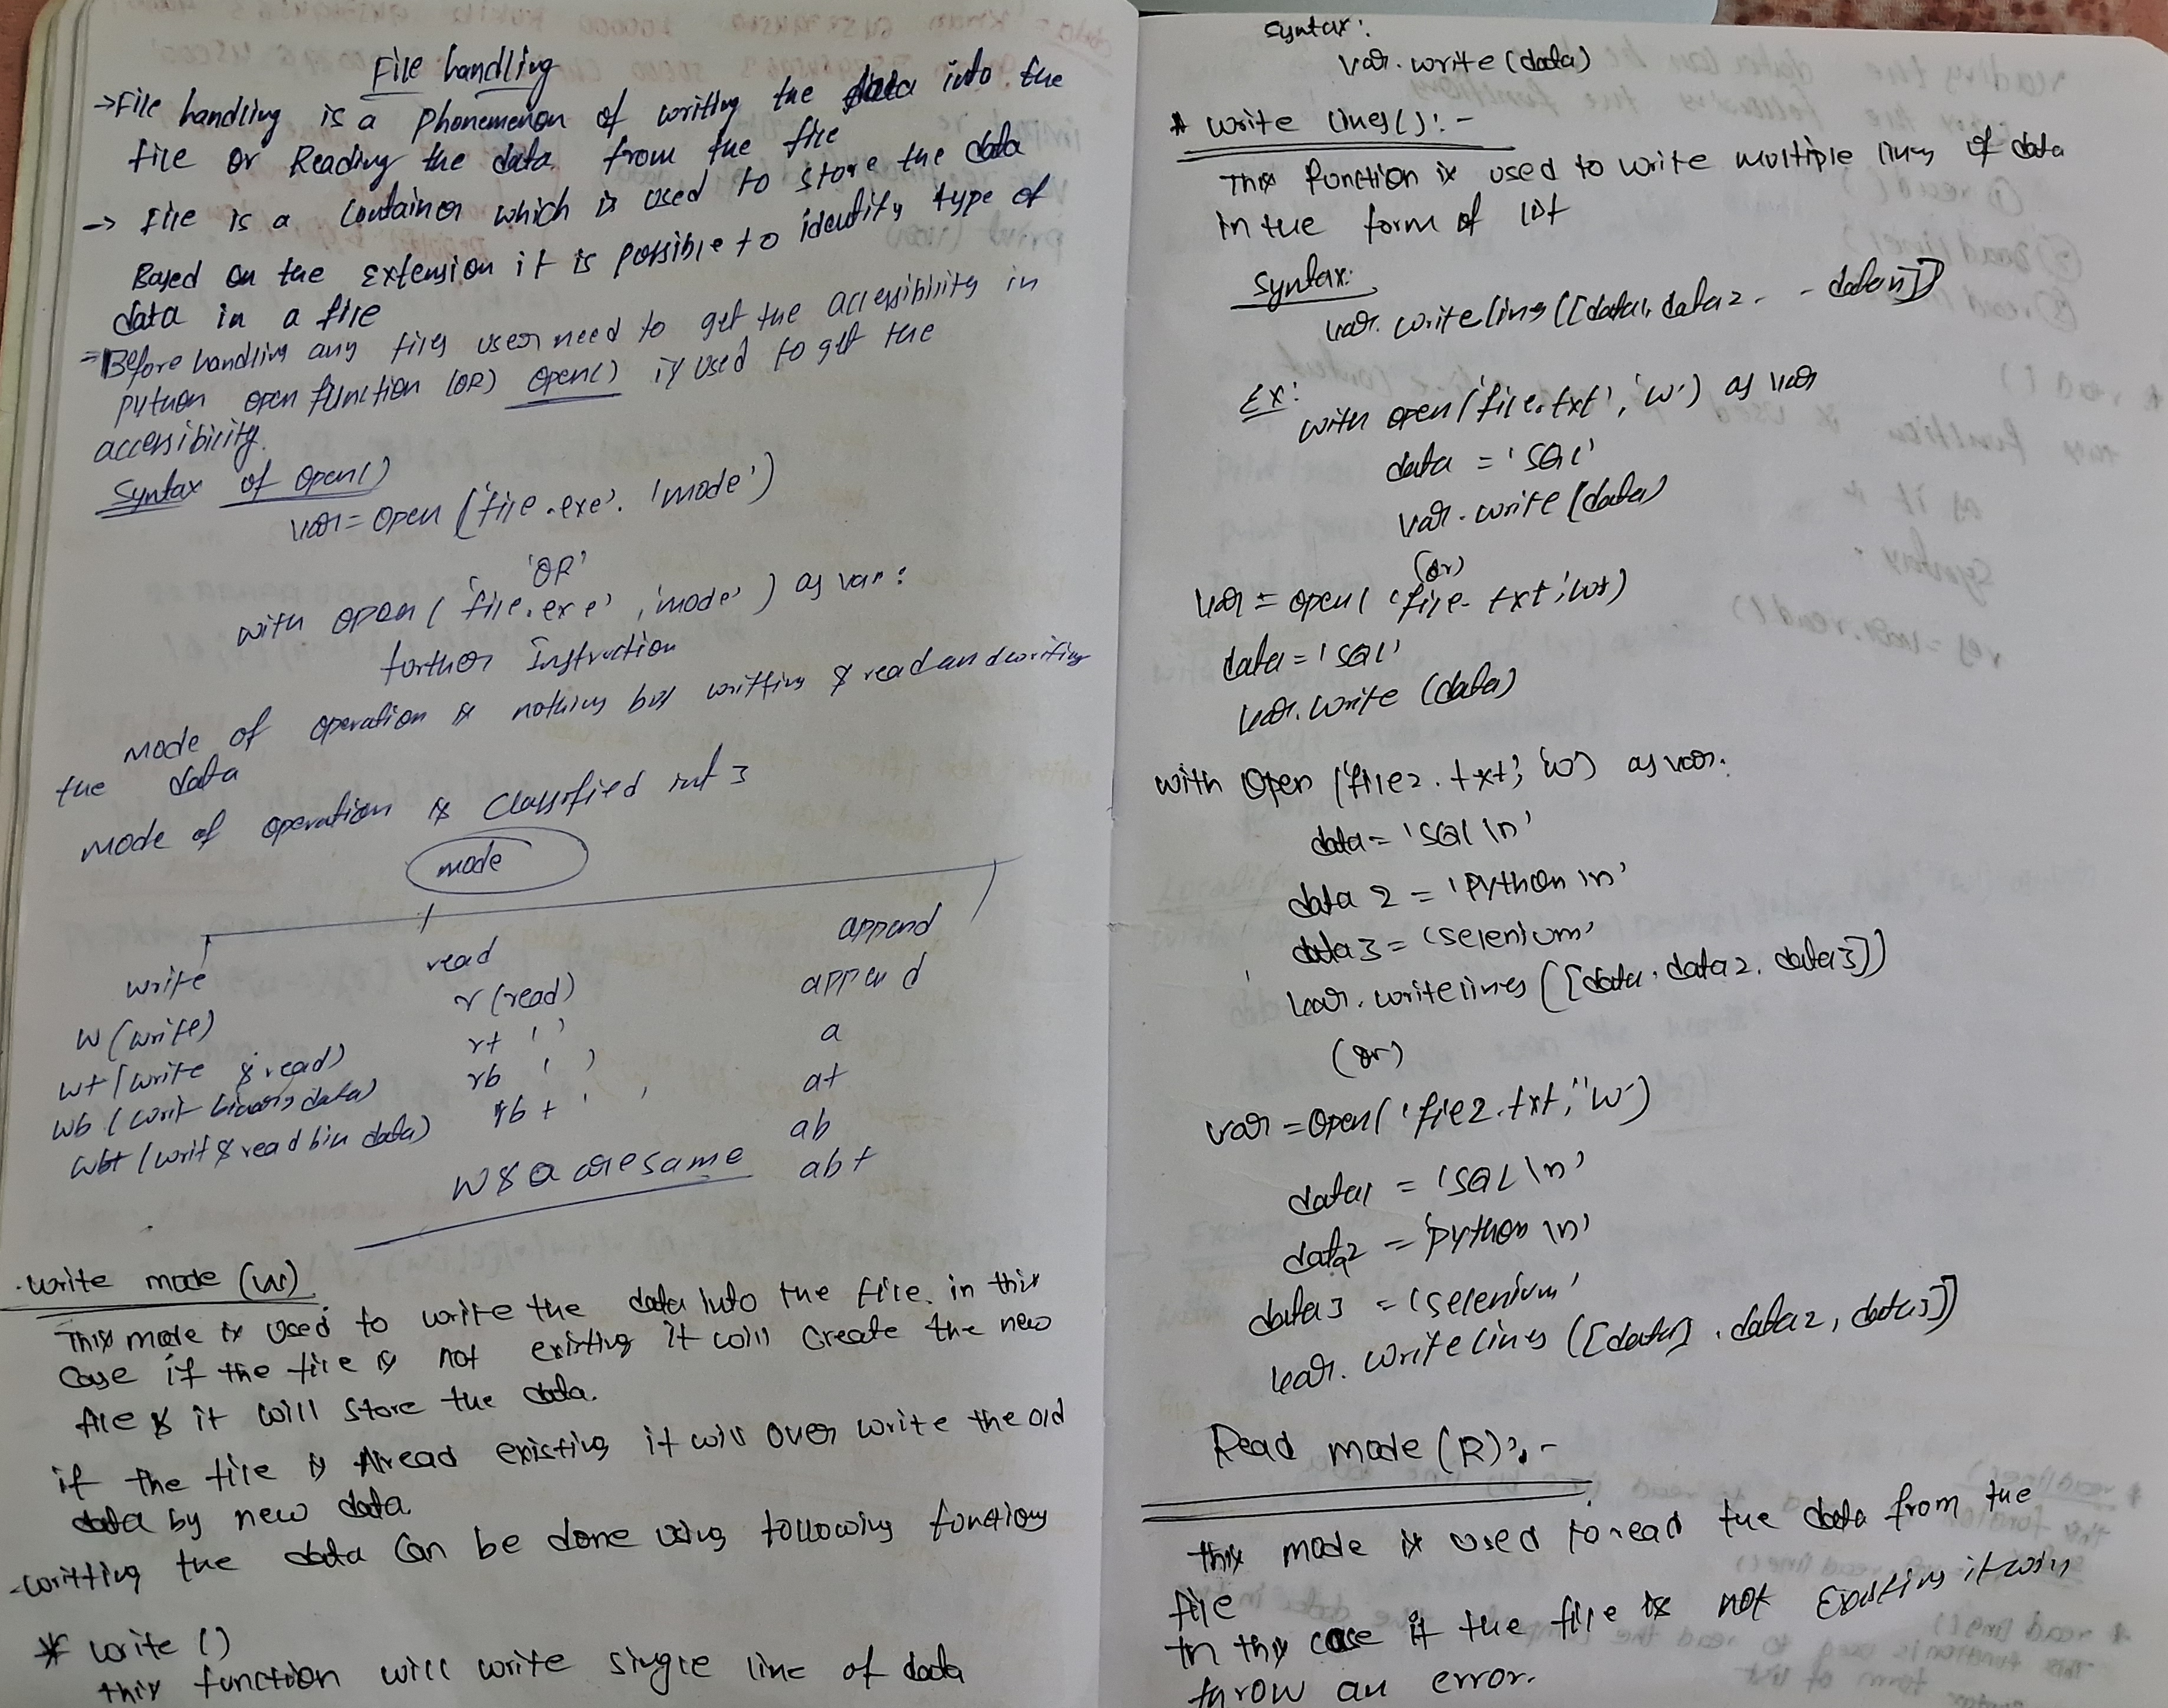 File handling
→File handling is a Phonemenon of writting the data into the
file or Reading the data from the file
→ File is a Container which is used to store the data
Based on the Extension it is possible to identify type of
data in a file
Before handling any files user need to get the accessibility in
python open function (OR) open() is used to get the
accessibility.
Syntax of Open()
var = open ('file.exe'. 'mode')
'OR'
with open ( 'file.exe' , 'mode' ) as var :
further Instruction
mode of operation is nothing but writting & read and writing
the data
mode of operation is Classified int 3
mode
write read append
w (write) r (read) append
w+ (write & read) r+ ' ' a
wb (writ binary data) rb ' ' a+
wb+ (writ & read bin data) rb + ' ' ab
w & a are same ab+
write mode (w)
This mode is used to write the data into the file. in this
case if the file is not existing it will create the new
file & it will store the data.
if the file is Alread existing it will over write the old
data by new data.
-writting the data can be done using following functions
* write ()
this function will write single line of data
Syntax:
var.write (data)
* write lines():-
This function is used to write multiple lines of data
in the form of list
Syntax:
var. writelines ([data1, data2 - - datan])
Ex:
with open ('file.txt', 'w') as var
data = 'SQL'
var.write (data)
(or)
var = open( 'file. txt', 'w')
data = 'SQL'
var.write (data)
with Open ('file2.txt', 'w') as var.
data = 'SQL \n'
data 2 = 'Python \n'
data 3 = 'selenium'
var. writelines ([data, data2, data3])
(or)
var = Open( 'file2.txt', 'w')
data1 = 'SQL \n'
data2 = 'Python \n'
data3 = 'selenium'
var. writelines ([data1, data2, data3])
Read mode (R):-
this mode is used to read the data from the
file
In this case if the file is not Existing it will
throw an error.